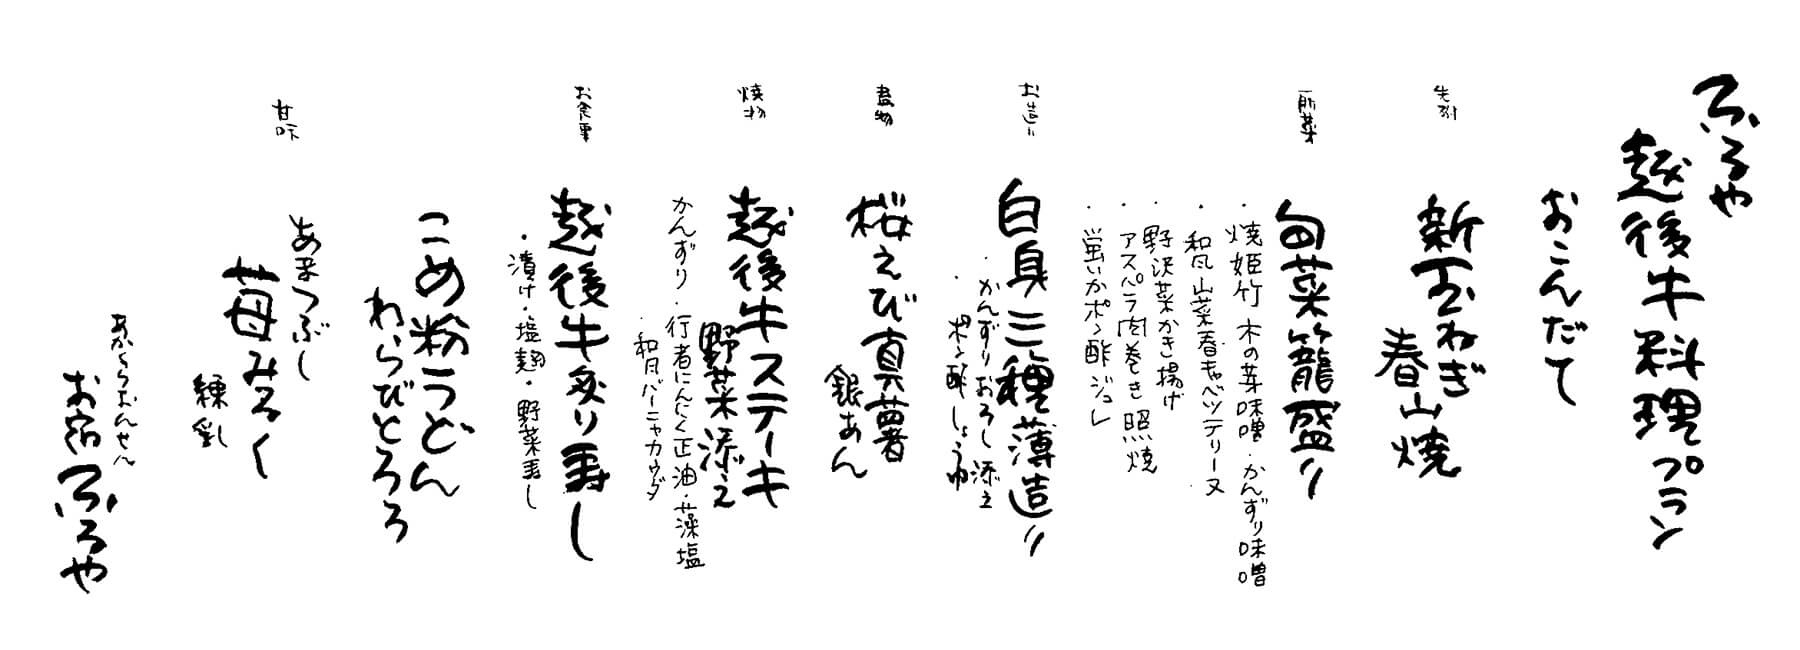 ふるや
越後牛料理プラン
おこんだて
先附
新玉ねぎ
春山焼
前菜
旬菜籠盛り
・焼姫竹 木の芽味噌・かんずり味噌
・和風山菜春キャベツテリーヌ
・野沢菜かき揚げ
・アスパラ肉巻き照焼
・蛍いかポン酢ジュレ
お造り
白身三種薄造り
・かんずりおろし添え
・ポン酢しょうゆ
煮物
桜えび真薯
銀あん
焼物
越後牛ステーキ
野菜添え
かんずり・行者にんにく正油・藻塩
・和風バーニャカウダ
お食事
越後牛炙り寿し
・漬け・塩麹・野菜寿し
こめ粉うどん
わらびとろろ
甘味
あまつぶし
苺みるく
練乳
あからおんせん
お宿ふるや